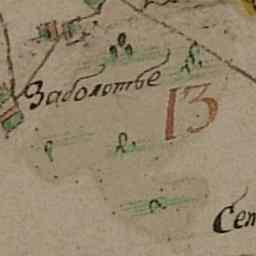 Заболотье
13
Сен